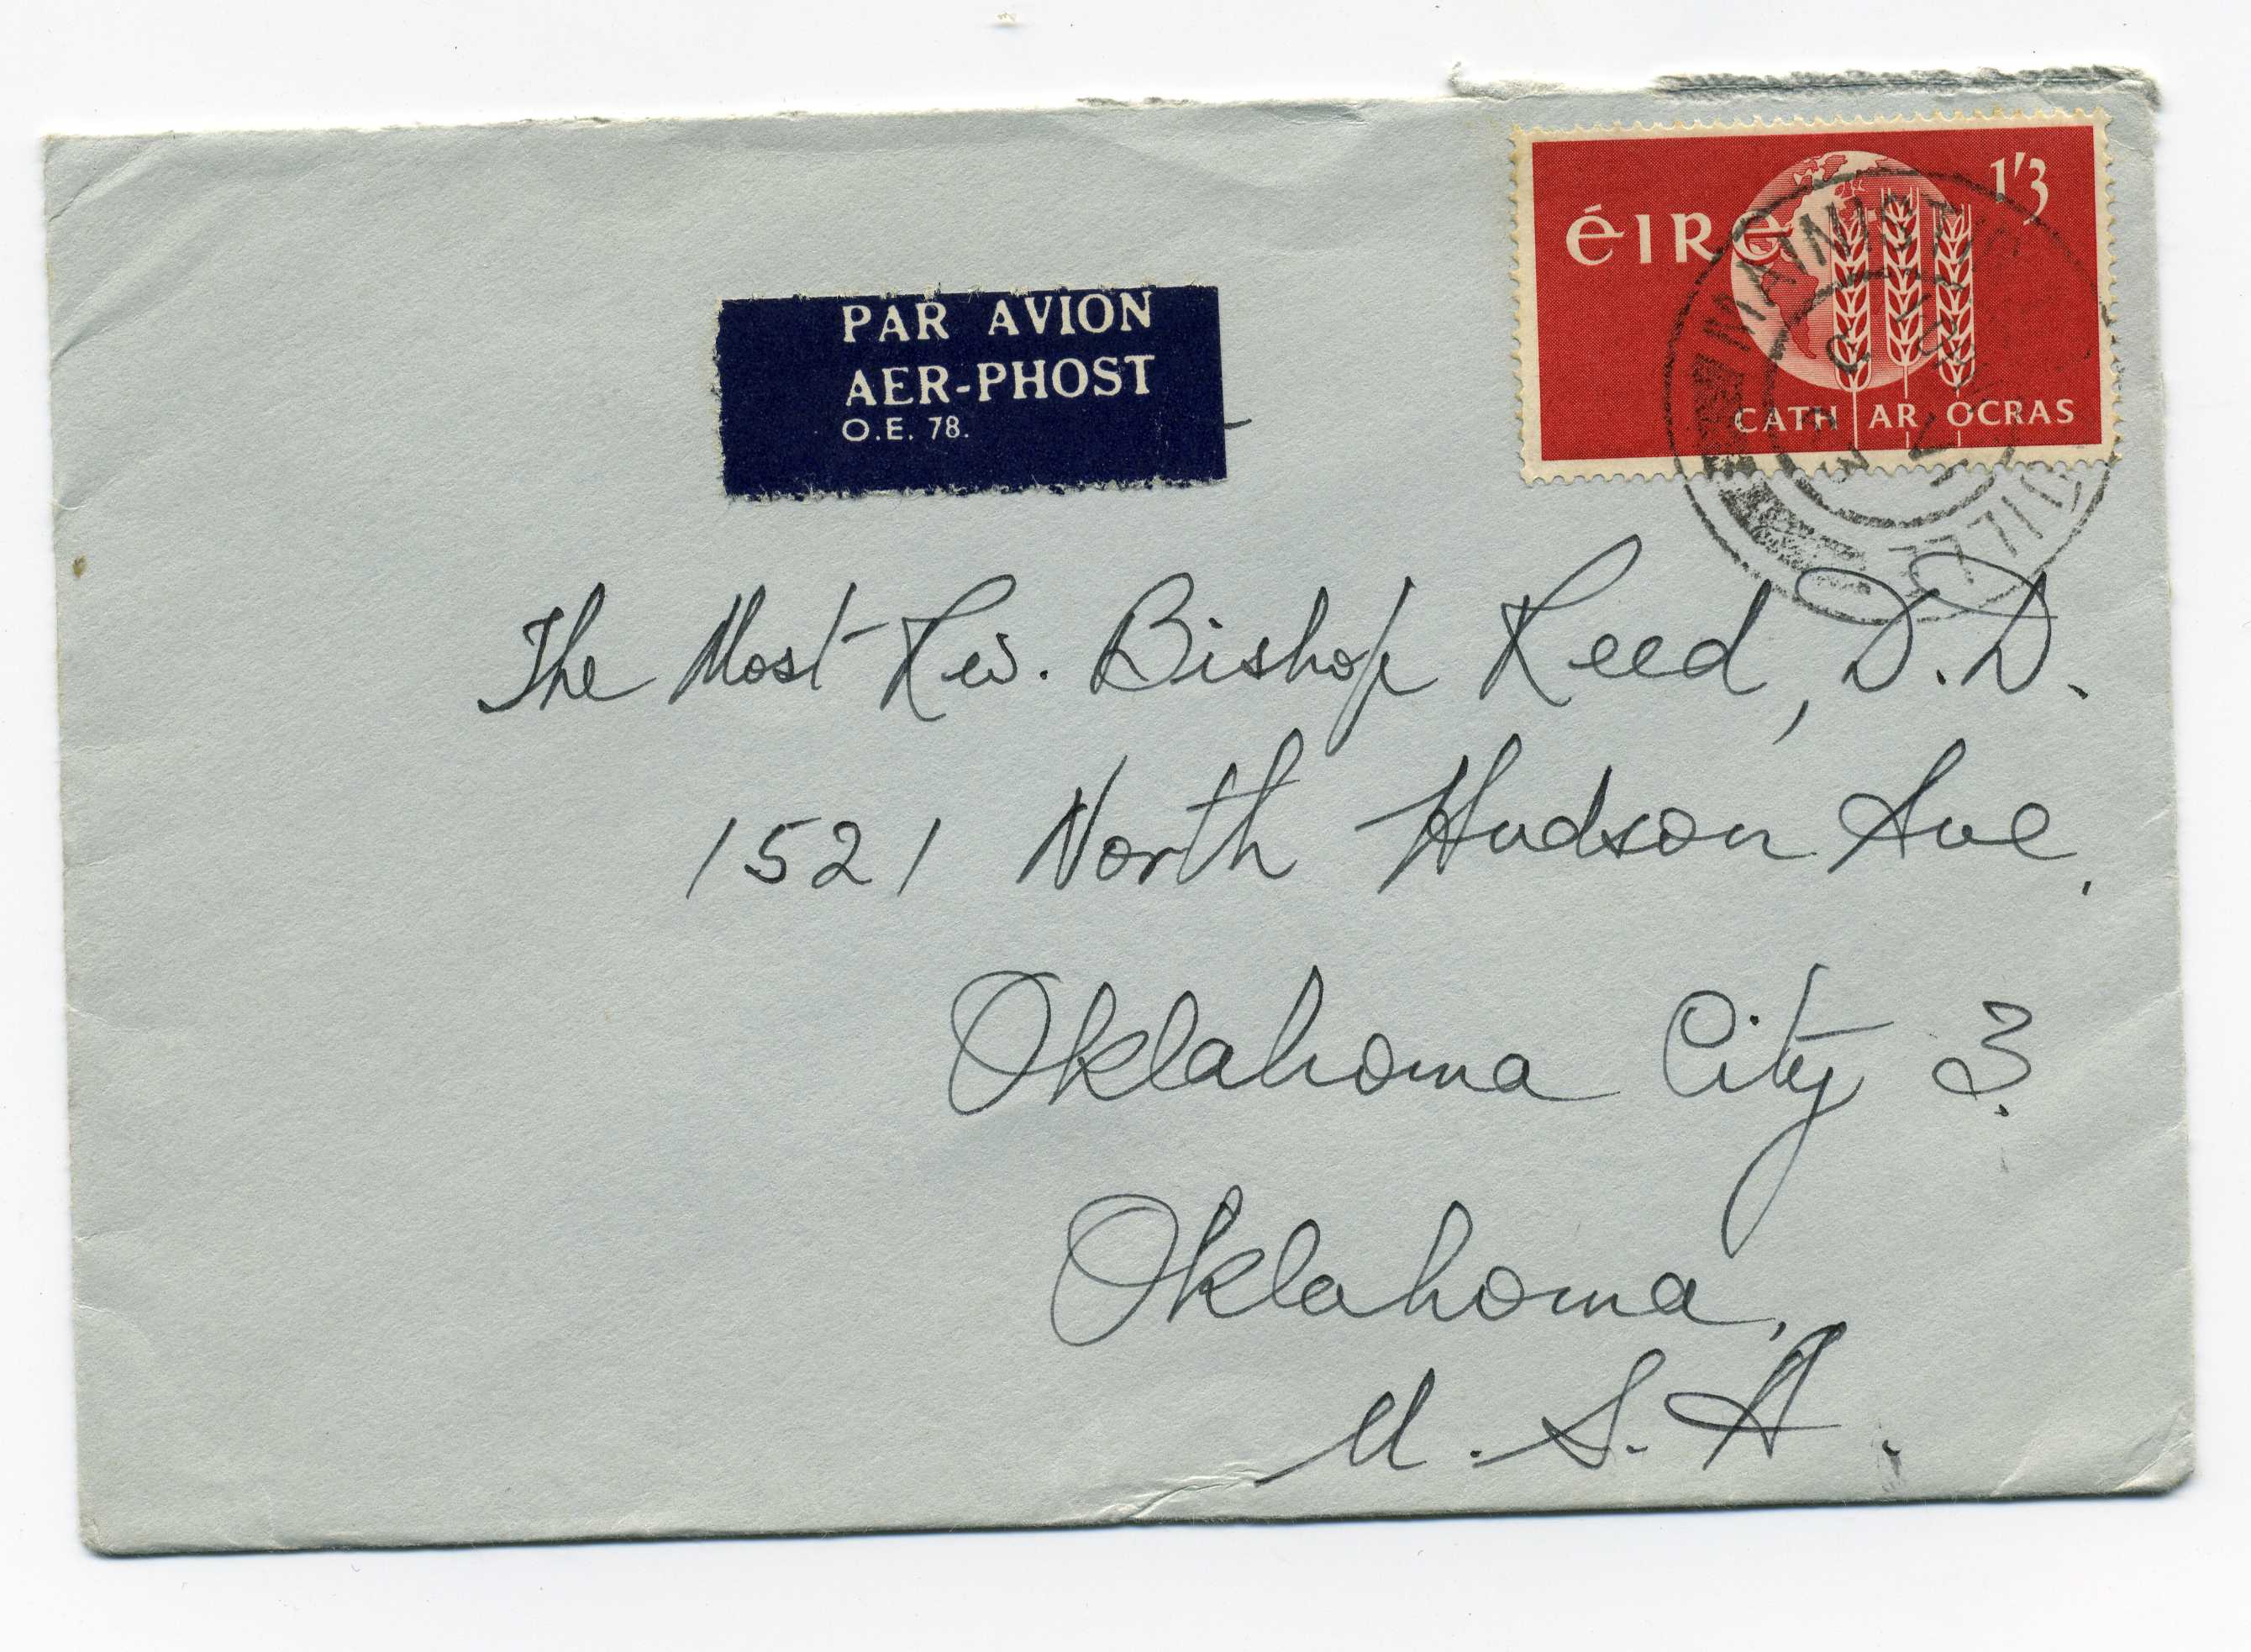 PAR AVION
AER-PHOST
O.E. 78.
éire
1'3
CATH AR OCRAS
The Most Rev. Bishop Reed, D.D.
1521 North Hudson Ave,
Oklahoma City 3.
Oklahoma,
U.S.A.